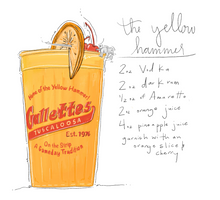 the yellow
hammer
2oz Vodka
2oz dark rum
1/2 oz of Amaretto
2oz orange juice
4oz pineapple juice
garnish with an
orange slice &
cherry
Home of the Yellow Hammer!
Gallettes
TUSCALOOSA
Est. 1976
On the Strip
A Gameday Tradition